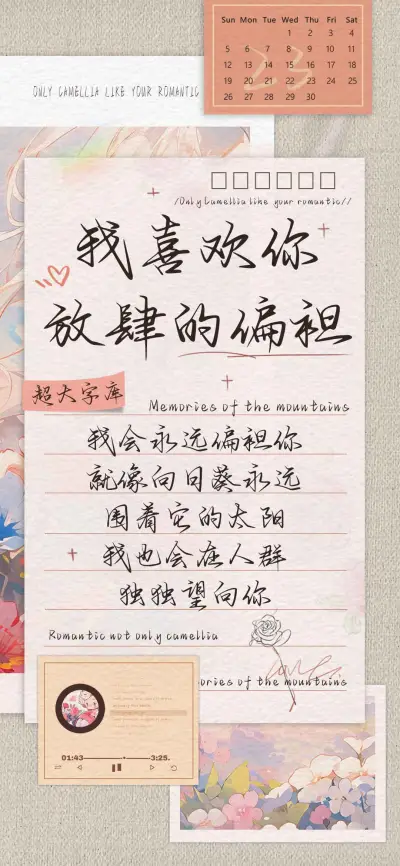 Sun Mon Tue Wed Thu Fri Sat
1 2 3 4
5 6 7 8 9 10 11
12 13 14 15 16 17 18
19 20 21 22 23 24 25
26 27 28 29 30
23
ONLY CAMELLIA LIKE YOUR ROMANTIC
/Only Camellia like your romantic//
我喜欢你
放肆的偏袒
超大字库
Memories of the mountains
我会永远偏袒你
就像向日葵永远
围着它的太阳
我也会在人群
独独望向你
Romantic not only camellia
ories of the mountains
01:43
3:25.